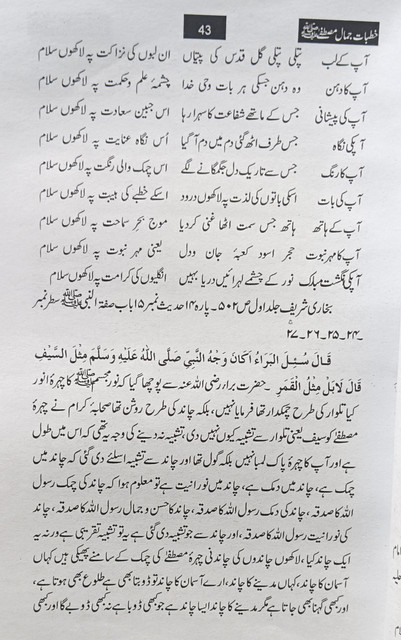 خطبات جمال مصطفےٰ ﷺ 43
آپ کے لب پتلی پتلی گل قدس کی پتیاں ان لبوں کی نزاکت پہ لاکھوں سلام
آپ کا دہن وہ دہن جسکی ہر بات وحی خدا چشمۂ علم و حکمت پہ لاکھوں سلام
آپ کی پیشانی جس کے ماتھے شفاعت کا سہرا رہا اس جبین سعادت پہ لاکھوں سلام
آپکی نگاہ جس طرف اٹھ گئی دم میں دم آ گیا اُس نگاہ عنایت پہ لاکھوں سلام
آپ کا رنگ جس سے تاریک دل جگمگانے لگے اس چمک والی رنگت پہ لاکھوں سلام
آپ کی بات اسکی باتوں کی لذت پہ لاکھوں درود اسکے خطبے کی ہیبت پہ لاکھوں سلام
آپ کے ہاتھ ہاتھ جس سمت اٹھا غنی کر دیا موج بحر سماحت پہ لاکھوں سلام
آپ کا مہر نبوت حجر اسود کعبۂ جان ودل یعنی مہر نبوت پہ لاکھوں سلام
آپکی انگشت مبارک نور کے چشمے لہرائیں دریا بہیں انگلیوں کی کرامت پہ لاکھوں سلام
بخاری شریف جلد اول ص ۵۰۲۔ پارہ ۱۴ حدیث نمبر ۱۵ باب صفۃ النبی ﷺ سطر نمبر
۲۴۔۲۵۔۲۶۔۲۷
قَالَ سُئِلَ الْبَرَاءُ اَكَانَ وَجْهُ النَّبِيِّ صَلَّى اللهُ عَلَيْهِ وَسَلَّمَ مِثْلَ السَّيْفِ
قَالَ لَا بَلْ مِثْلُ الْقَمَرِ ۔ حضرت براء رضی اللہ عنہ سے پوچھا گیا کہ نور مجسم ﷺ کا چہرۂ انور
کیا تلوار کی طرح چمکدار تھا فرمایا نہیں، بلکہ چاند کی طرح روشن تھا صحابۂ کرام نے چہرۂ
مصطفےٰ کو سیف یعنی تلوار سے تشبیہ کیوں نہیں دی، تشبیہ نہ دینے کی وجہ یہ تھی کہ اس میں طول
ہے اور آپ کا چہرۂ پاک لمبا نہیں بلکہ گول تھا اور چاند سے تشبیہ اسلئے دی گئی کہ چاند میں
چمک ہے، چاند میں دمک ہے، چاند میں نورانیت ہے تو معلوم ہوا کہ چاند کی چمک رسول
اللہ کا صدقہ، چاند کی دمک رسول اللہ کا صدقہ، چاند کا حسن و جمال رسول اللہ کا صدقہ، چاند
کی نورانیت رسول اللہ کا صدقہ، اور چاند سے جو تشبیہ دی گئی ہے یہ تو تشبیہ تقریبی ہے ورنہ یہ
ایک چاند کیا، لاکھوں چاندوں کی چاندنی چہرۂ مصطفےٰ کی چمک کے سامنے پھیکی ہیں کہاں
آسمان کا چاند، کہاں مدینے کا چاند، ارے آسمان کا چاند تو ڈوبتا بھی ہے طلوع بھی ہوتا ہے،
اور کبھی گہنا بھی جاتا ہے مگر مدینے کا چاند ایسا چاند ہے جو کبھی ڈوبا ہے نہ کبھی ڈوبے گا اور کبھی